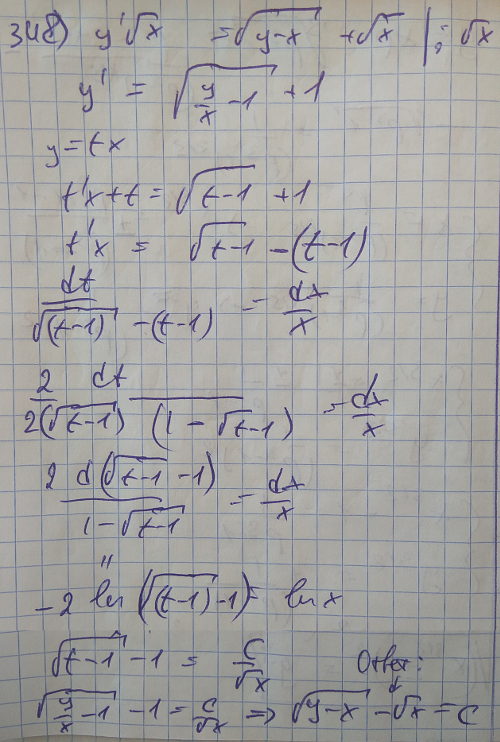 348) y'√x = √(y-x) + √x | : √x
y' = √(y/x - 1) + 1
y = tx
t'x + t = √(t-1) + 1
t'x = √(t-1) - (t-1)
dt/(√(t-1) - (t-1)) = dx/x
2 dt/(2(√(t-1)) (1 - √(t-1))) = dx/x
2 d(√(t-1) - 1)/(1 - √(t-1)) = dx/x
-2 ln(√(t-1) - 1) = ln x
√(t-1) - 1 = C/√x Ответ:
√(y/x - 1) - 1 = C/√x ⇒ √(y-x) - √x = C